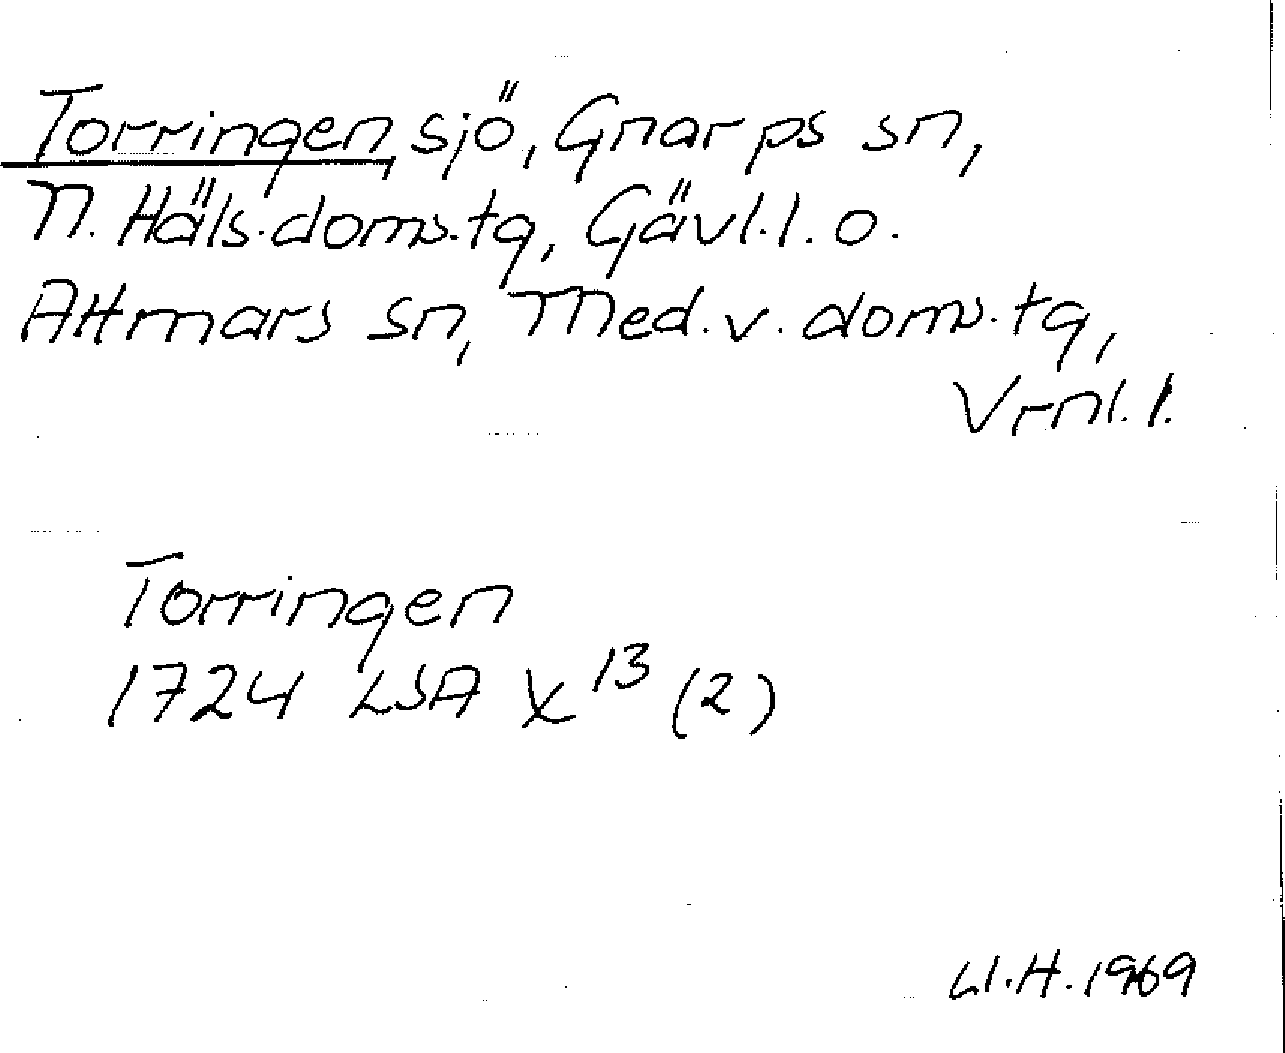 Torringen, sjö, Gnarps sn,
N. Häls. doms. tg, Gävl. l. o.
Attmars sn, Med. v. doms. tg,
Vrnl. l.
Torringen
1724 LSA X 13 (2)
Ll. H. 1969